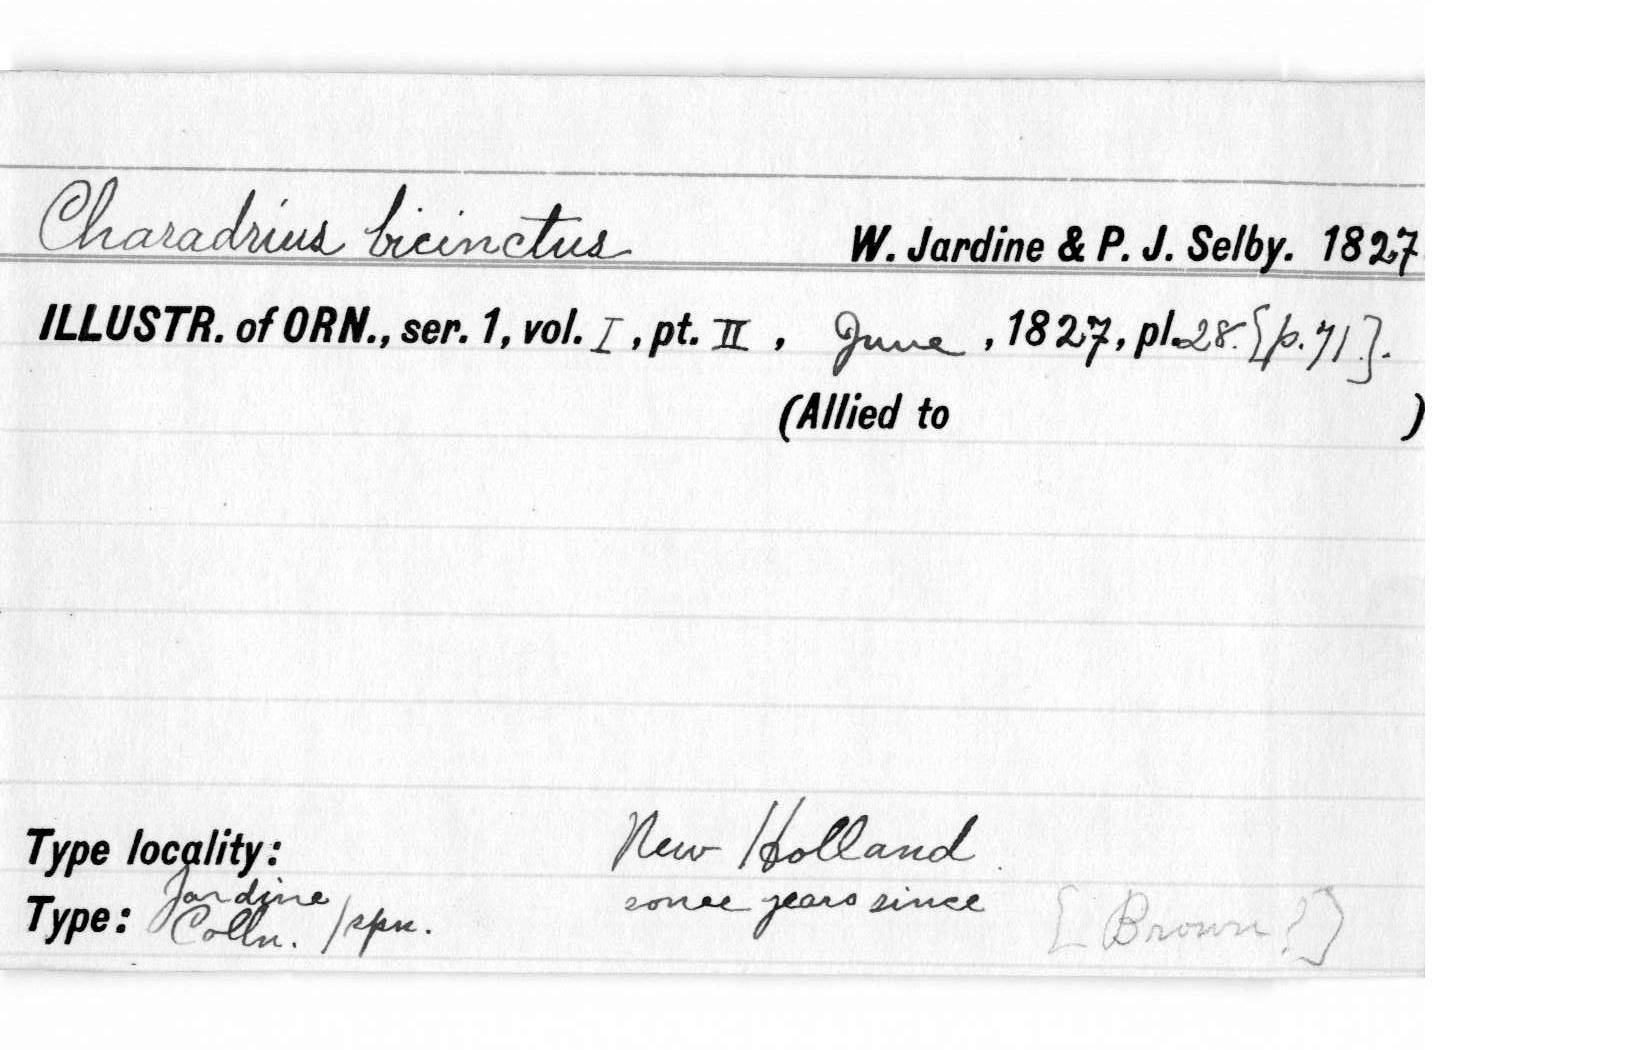 Charadrius bicinctus W. Jardine & P. J. Selby. 1827
ILLUSTR. of ORN., ser. 1, vol. I, pt. II, June, 1827, pl. 28. [p. 71].
(Allied to )
Type locality: New Holland
Type: Jardine Colln. 1 spn. some years since [Brown?]